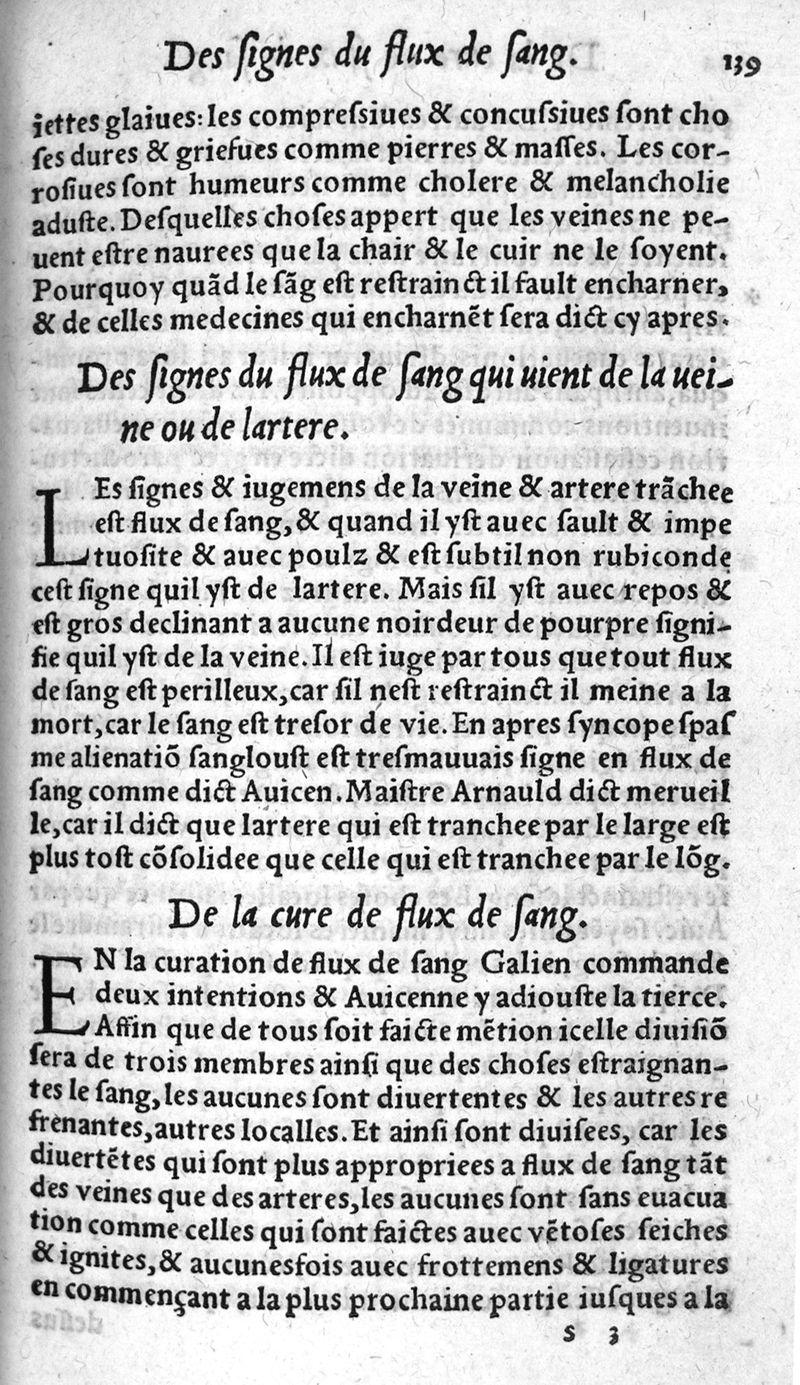 Des ſignes du flux de ſang. 139
iettes glaiues: les compreſsiues & concuſsiues ſont cho
ſes dures & griefues comme pierres & maſſes. Les cor-
roſiues ſont humeurs comme cholere & melancholie
aduſte. Deſquelles choſes appert que les veines ne pe-
uent eſtre naurees que la chair & le cuir ne le ſoyent.
Pourquoy quãd le ſãg eſt reſtrainct il fault encharner,
& de celles medecines qui encharnẽt ſera dict cy apres.
Des ſignes du flux de ſang qui uient de la uei-
ne ou de lartere.
LEs ſignes & iugemens de la veine & artere trãchee
eſt flux de ſang, & quand il yſt auec ſault & impe
tuoſite & auec poulz & eſt ſubtil non rubiconde
ceſt ſigne quil yſt de lartere. Mais ſil yſt auec repos &
eſt gros declinant a aucune noirdeur de pourpre ſigni-
fie quil yſt de la veine. Il eſt iuge par tous que tout flux
de ſang eſt perilleux, car ſil neſt reſtrainct il meine a la
mort, car le ſang eſt treſor de vie. En apres ſyncope ſpaſ
me alienatiõ ſanglouſt eſt treſmauuais ſigne en flux de
ſang comme dict Auicen. Maiſtre Arnauld dict merueil
le, car il dict que lartere qui eſt tranchee par le large eſt
plus toſt cõſolidee que celle qui eſt tranchee par le lõg.
De la cure de flux de ſang.
EN la curation de flux de ſang Galien commande
deux intentions & Auicenne y adiouſte la tierce.
Affin que de tous ſoit faicte mẽtion icelle diuiſiõ
ſera de trois membres ainſi que des choſes eſtraignan-
tes le ſang, les aucunes ſont diuertentes & les autres re
frenantes, autres localles. Et ainſi ſont diuiſees, car les
diuertẽtes qui ſont plus appropriees a flux de ſang tãt
des veines que des arteres, les aucunes ſont ſans euacua
tion comme celles qui ſont faictes auec vẽtoſes ſeiches
& ignites, & aucunesfois auec frottemens & ligatures
en commençant a la plus prochaine partie iuſques a la
S 3